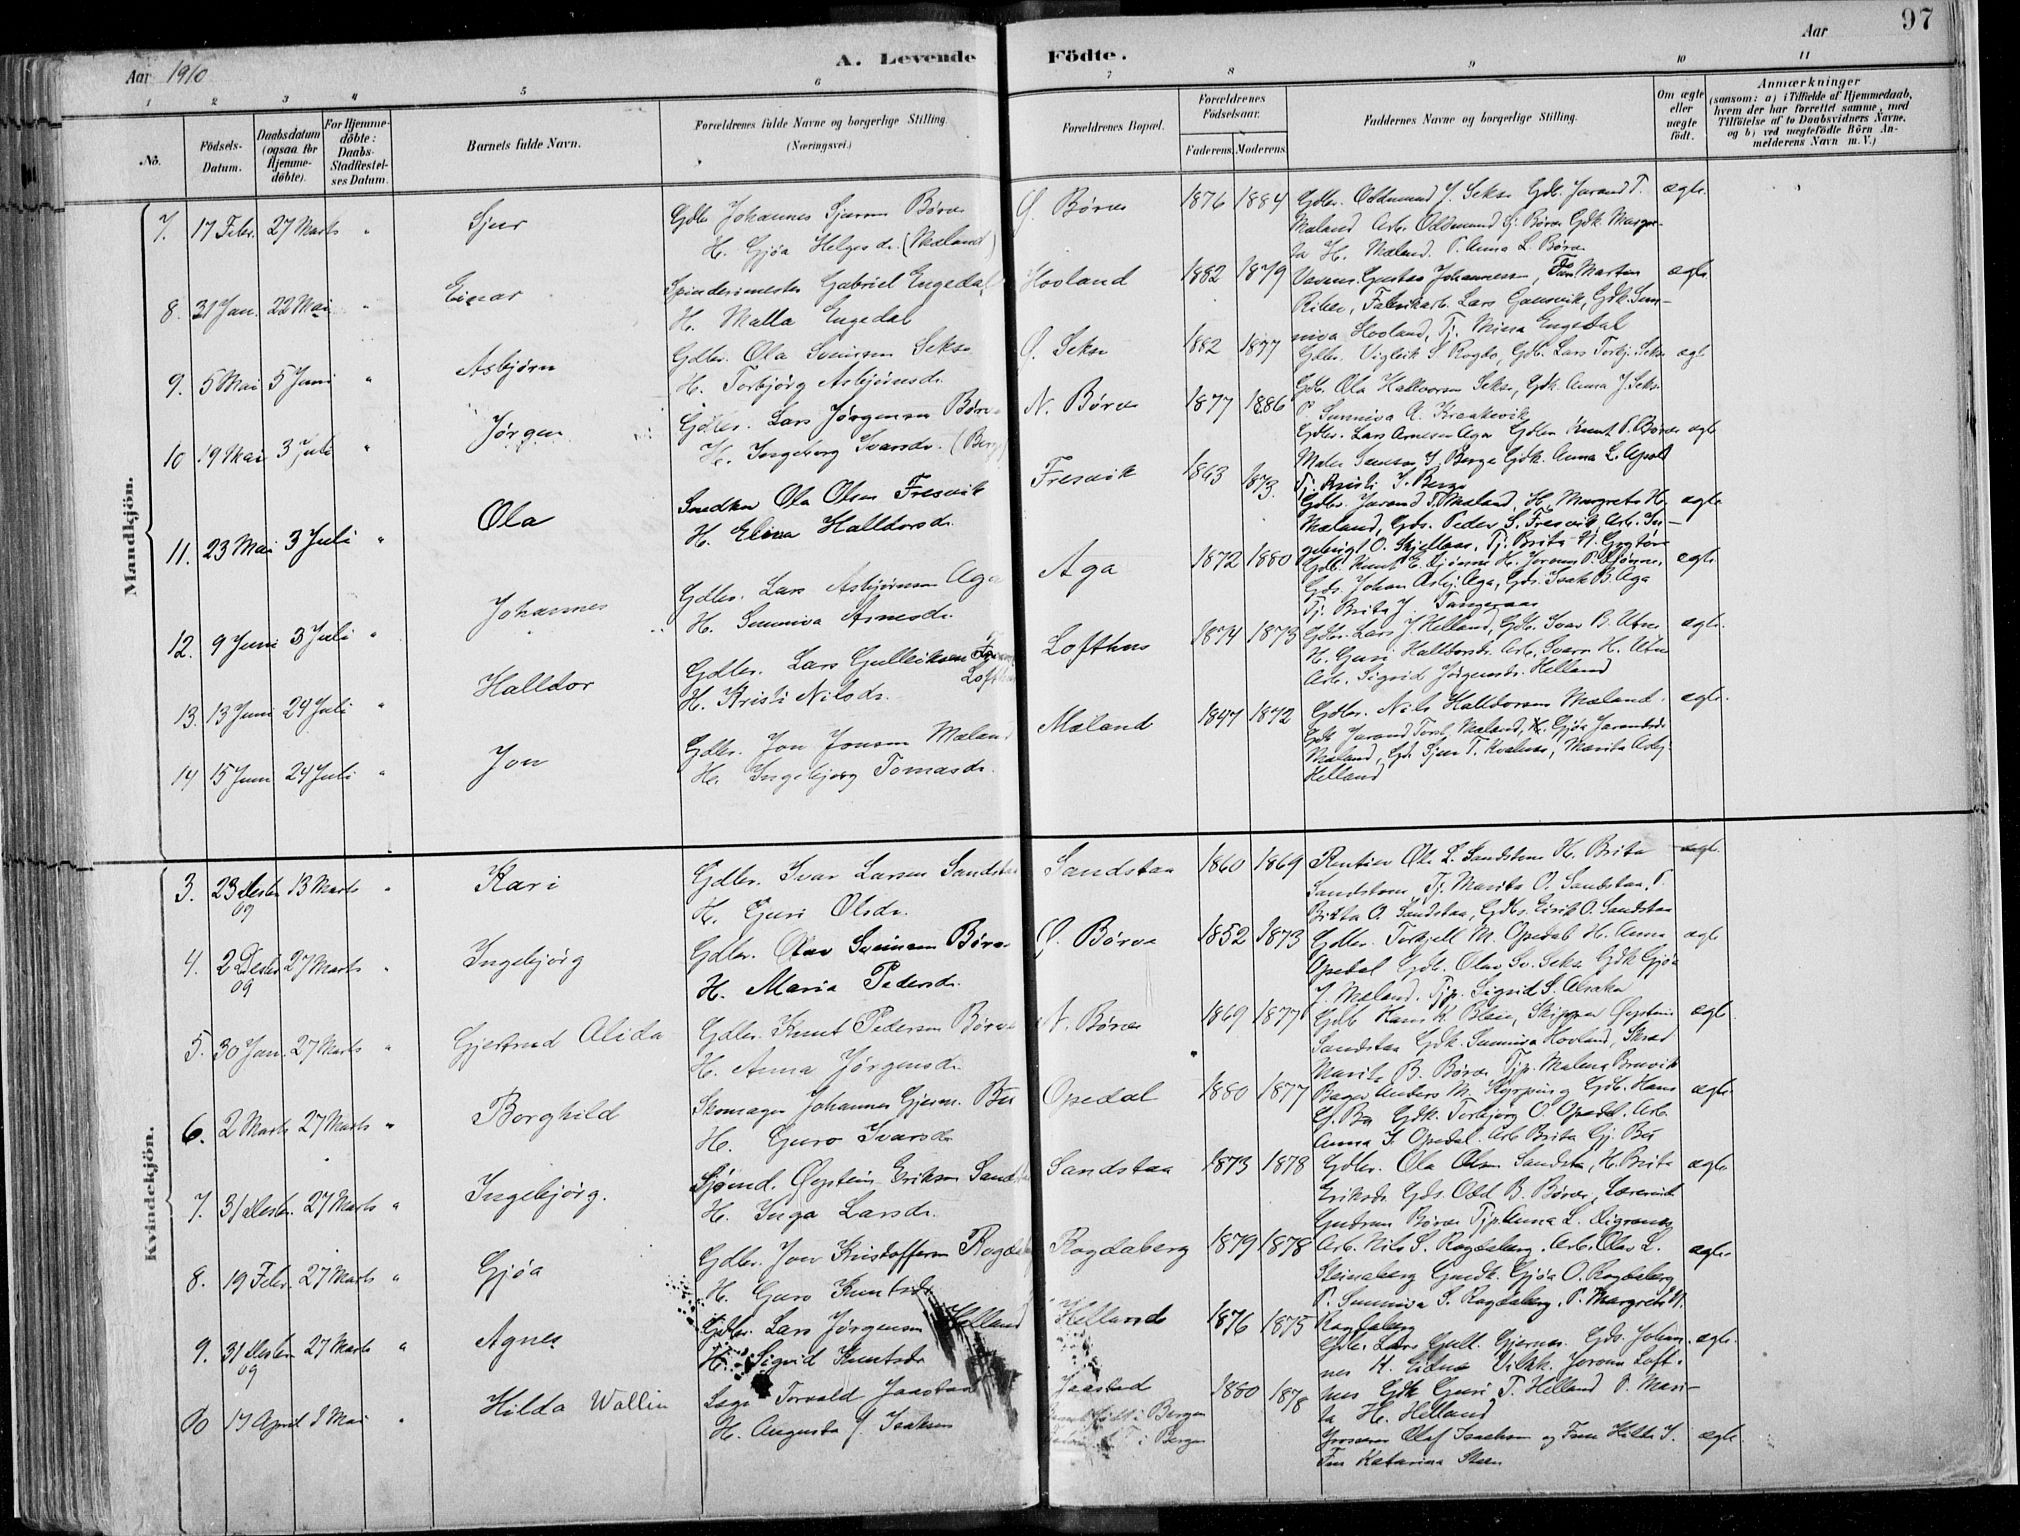 97
Aar 1910
A. Levende Födte.
Aar
1 2 3 4 5 6 7 8 9 10 11
No.
Födsels-Datum.
Daabsdatum (ogsaa for Hjemme-döbte).
For Hjemme-döbte: Daabs-Stadfæstel-ses Datum.
Barnets fulde Navn.
Forældrenes fulde Navne og borgerlige Stilling.
(Næringsvei.)
Forældrenes Bopæl.
Forældrenes Födselsaar.
Faderens. Moderens.
Faddernes Navne og borgerlige Stilling.
Om ægte eller uægte født.
Anmærkninger
(saasom: a) i Tilfælde af Hjemmedaab,
hvem der har forrettet samme, med
Tilföielse af to Daabsvidners Navne,
og b) ved uægtefödte Börn An-
melderens Navn m. V.)
Mandkjön.
7. 17 Febr. 27 Marts " Sjur
Gdbr Johannes Sjursen Børve
H. Gjøa Helgesdr. (Mæland)
Ø. Børve 1876 1884
Gdbr. Oddmund J. Sekse Gdb. Jarand T.
Mæland Arb. Oddmund Gj. Børve Gdk. Margre-
ta H. Mæland. P. Anna L. Børve
ægte.
8. 31 Jan. 22 Mai " Einar
Spinderimester Gabriel Engedal
H. Malla Engedal
Hovland 1882 1879
Gustav Johannesen, Fru Marten
Riber, Fabrikarb. Lars Gausvik, Gdk. Sun-
niva Hovland, Tj. Mina Engedal
ægte
9. 5 Mai 5 Juni " Asbjørn
Gdbr. Ola Svensen Sekse
H. Torbjørg Asbjørnsdr.
Ø. Sekse 1882 1877
Gdbr. Vigleik S Rogde, Gdb. Lars Torbj. Sekse
Gdb. Ola Halvorsen Sekse, Gdk. Anna J. Sekse
P. Sunniva A. Kraakevik
ægte
10 19 Mai 3 Juli " Jørgen
Gdbr. Lars Jørgensen Børve
H. Ingeborg Svarsdr. (Berge)
N. Børve 1877 1886
Gdbr. Lars Arnesen Aga Gdbr Knut P. Børve
Maler Samson J. Berge Gdk. Anna L. Apold
Tj. Kristi I. Berge
ægte
11. 23 Mai 3 Juli " Ola
Snedker Ola Olsen Fresvik
H. Elina Halldorsdr.
Fresvik 1863 1873.
Gdbr. Jarand T. Mæland, H. Margreta H.
Mæland, Gds. Peder S. Fresvik, Arb. In-
gebrigt O. Skjellaas, Tj. Brita N.
ægte
12. 9 Juni 3 Juli " Johannes
Gdbr. Lars Asbjørnsen Aga
H. Sunniva Arnesdr.
Aga 1872 1880
Gdb. Knut E. Djønne H. Jorunn P. Djønne,
Gds. Johan Asbj. Aga, Gds. Isak B. Aga
Tj. Brita J. Tangeraas
ægte.
13. 13 Juni 24 Juli " Halldor
Gdbr. Lars Gulleiksen Lofthus
H. Kristi Nilsdr.
Lofthus 1874 1873
Gdbr. Lars J. Helland, Gdb. Ivar B. Utne
H. Guri Halldorsdr. Arb. Svarr H. Utne
Arb. Sigrid Jørgensdr. Helland
ægte.
14 15 Juni 24 Juli " Jon
Gdbr. Jon Jonsen Mæland
H. Ingebjørg Tomasdr.
Mæland 1847 1872
Gdbr. Nils Halldorsen Mæland.
Gdb Jarand Torst. Mæland, H. Gjøa Jarandsdr.
Mæland, Gds. Sjur T. Kvalnes, Marita Asbj.
Helland
ægte.
Kvindekjön.
3. 23 Desbr 09 13 Marts " Kari
Gdbr. Ivar Larsen Sandstaa
H. Guri Olsdr.
Sandstaa 1860 1869
Rentier Ola L. Sandstaa H. Brita
Sandstaa, Tj. Marita O. Sandstaa, P.
Brita O. Sandstaa, Gdbs. Eirik O. Sandstaa
ægte.
4. 2 Desbr 09 27 Marts " Ingebjørg
Gdbr. Olav Sveinsen Børve
H. Maria Pedersdr.
Ø. Børve 1852 1873
Gdbr. Torkjell M. Opedal H. Anna
Opedal Gdb. Olav Sv. Sekse Gdk Gjøa
J. Mæland. Tjp. Sigrid S. Alsaker
ægte
5. 30 Jan. 27 Marts " Gjertrud Alida
Gdbr. Knut Pedersen Børve
H. Anna Jørgensdr.
N. Børve 1869 1877
Gdb Hans K. Bleie, Skipper Øystein
Sandstaa Gdk. Sunniva Hovland, Skræd
Marita B. Børve Tjp. Malena Bruvik
ægte.
6. 2 Marts 27 Marts " Borghild
Skomager Johannes Gjerm. Bu
H. Guro Ivarsdr
Opedal 1880 1877
Bager Anders M. Kyrping Gdb. Hans
G. Bu Gdk. Torbjørg O. Opedal. Arb.
Anna I. Opedal. Arb Brita Gj. Bu
ægte.
7. 31 Desbr. 27 Marts " Ingebjørg.
Sjømd. Øystein Eriksen Sandstaa
H. Inga Larsdr.
Sandstaa 1873 1878
Gdbr. Ola Olsen Sandstaa, H. Brita
Eriksdr Gds. Odd B. Børve, Lærerinde
Gudrun Børve Tjp. Anna L. Digranes
ægte
8. 19 Febr. 27 Marts " Gjøa
Gdbr. Jon Kristoffersen Rogdaberg
H. Guro Knutsdr
Rogdaberg 1879 1878
Arb. Nils S. Rogdaberg. Arb. Olav L.
Steinaberg Gmdk. Gjøa O. Rogdaberg
P. Sunniva S. Rogdaberg, P. Margreta H.
Rogdaberg
ægte
9. 31 Desbr 09 27 Marts " Agnes
Gdbr. Lars Jørgensen Helland
H. Sigrid Knutsdr
Helland 1876 1875
Gdbr. Lars Gull. Gjernes. Gds. Johan-
nes H. Eidnes Jorunn Loft-
hus Gdk Guri T. Helland P. Mari-
ta H. Helland
ægte.
10 17 April 8 Mai " Hilda Wallin
Torvald Jaastad
H. Augusta f. Isaksen
Jaastad 1880 1878
født i Bergen
i Bergen
Grosserer Olaf Isachsen og Frue Hilda I.
Fru Katarina Steen
ægte.